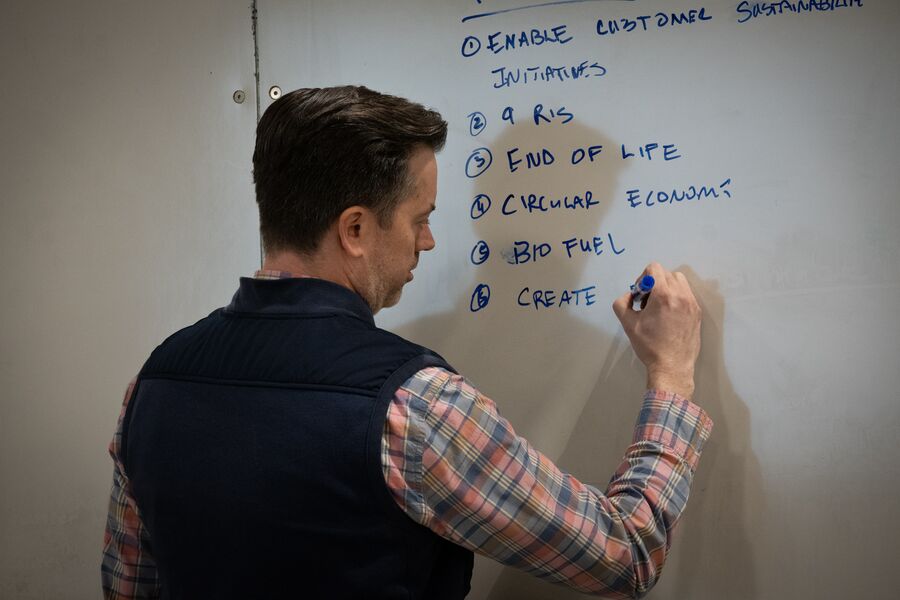 ① ENABLE CUSTOMER SUSTAINABILITY
INITIATIVES
② 9 RIS
③ END OF LIFE
④ CIRCULAR ECONOMY
⑤ BIO FUEL
⑥ CREATE